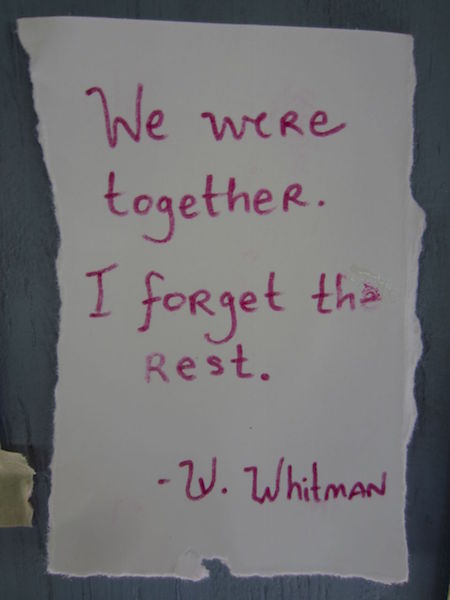 We were
together.
I forget the
Rest.
- W. Whitman